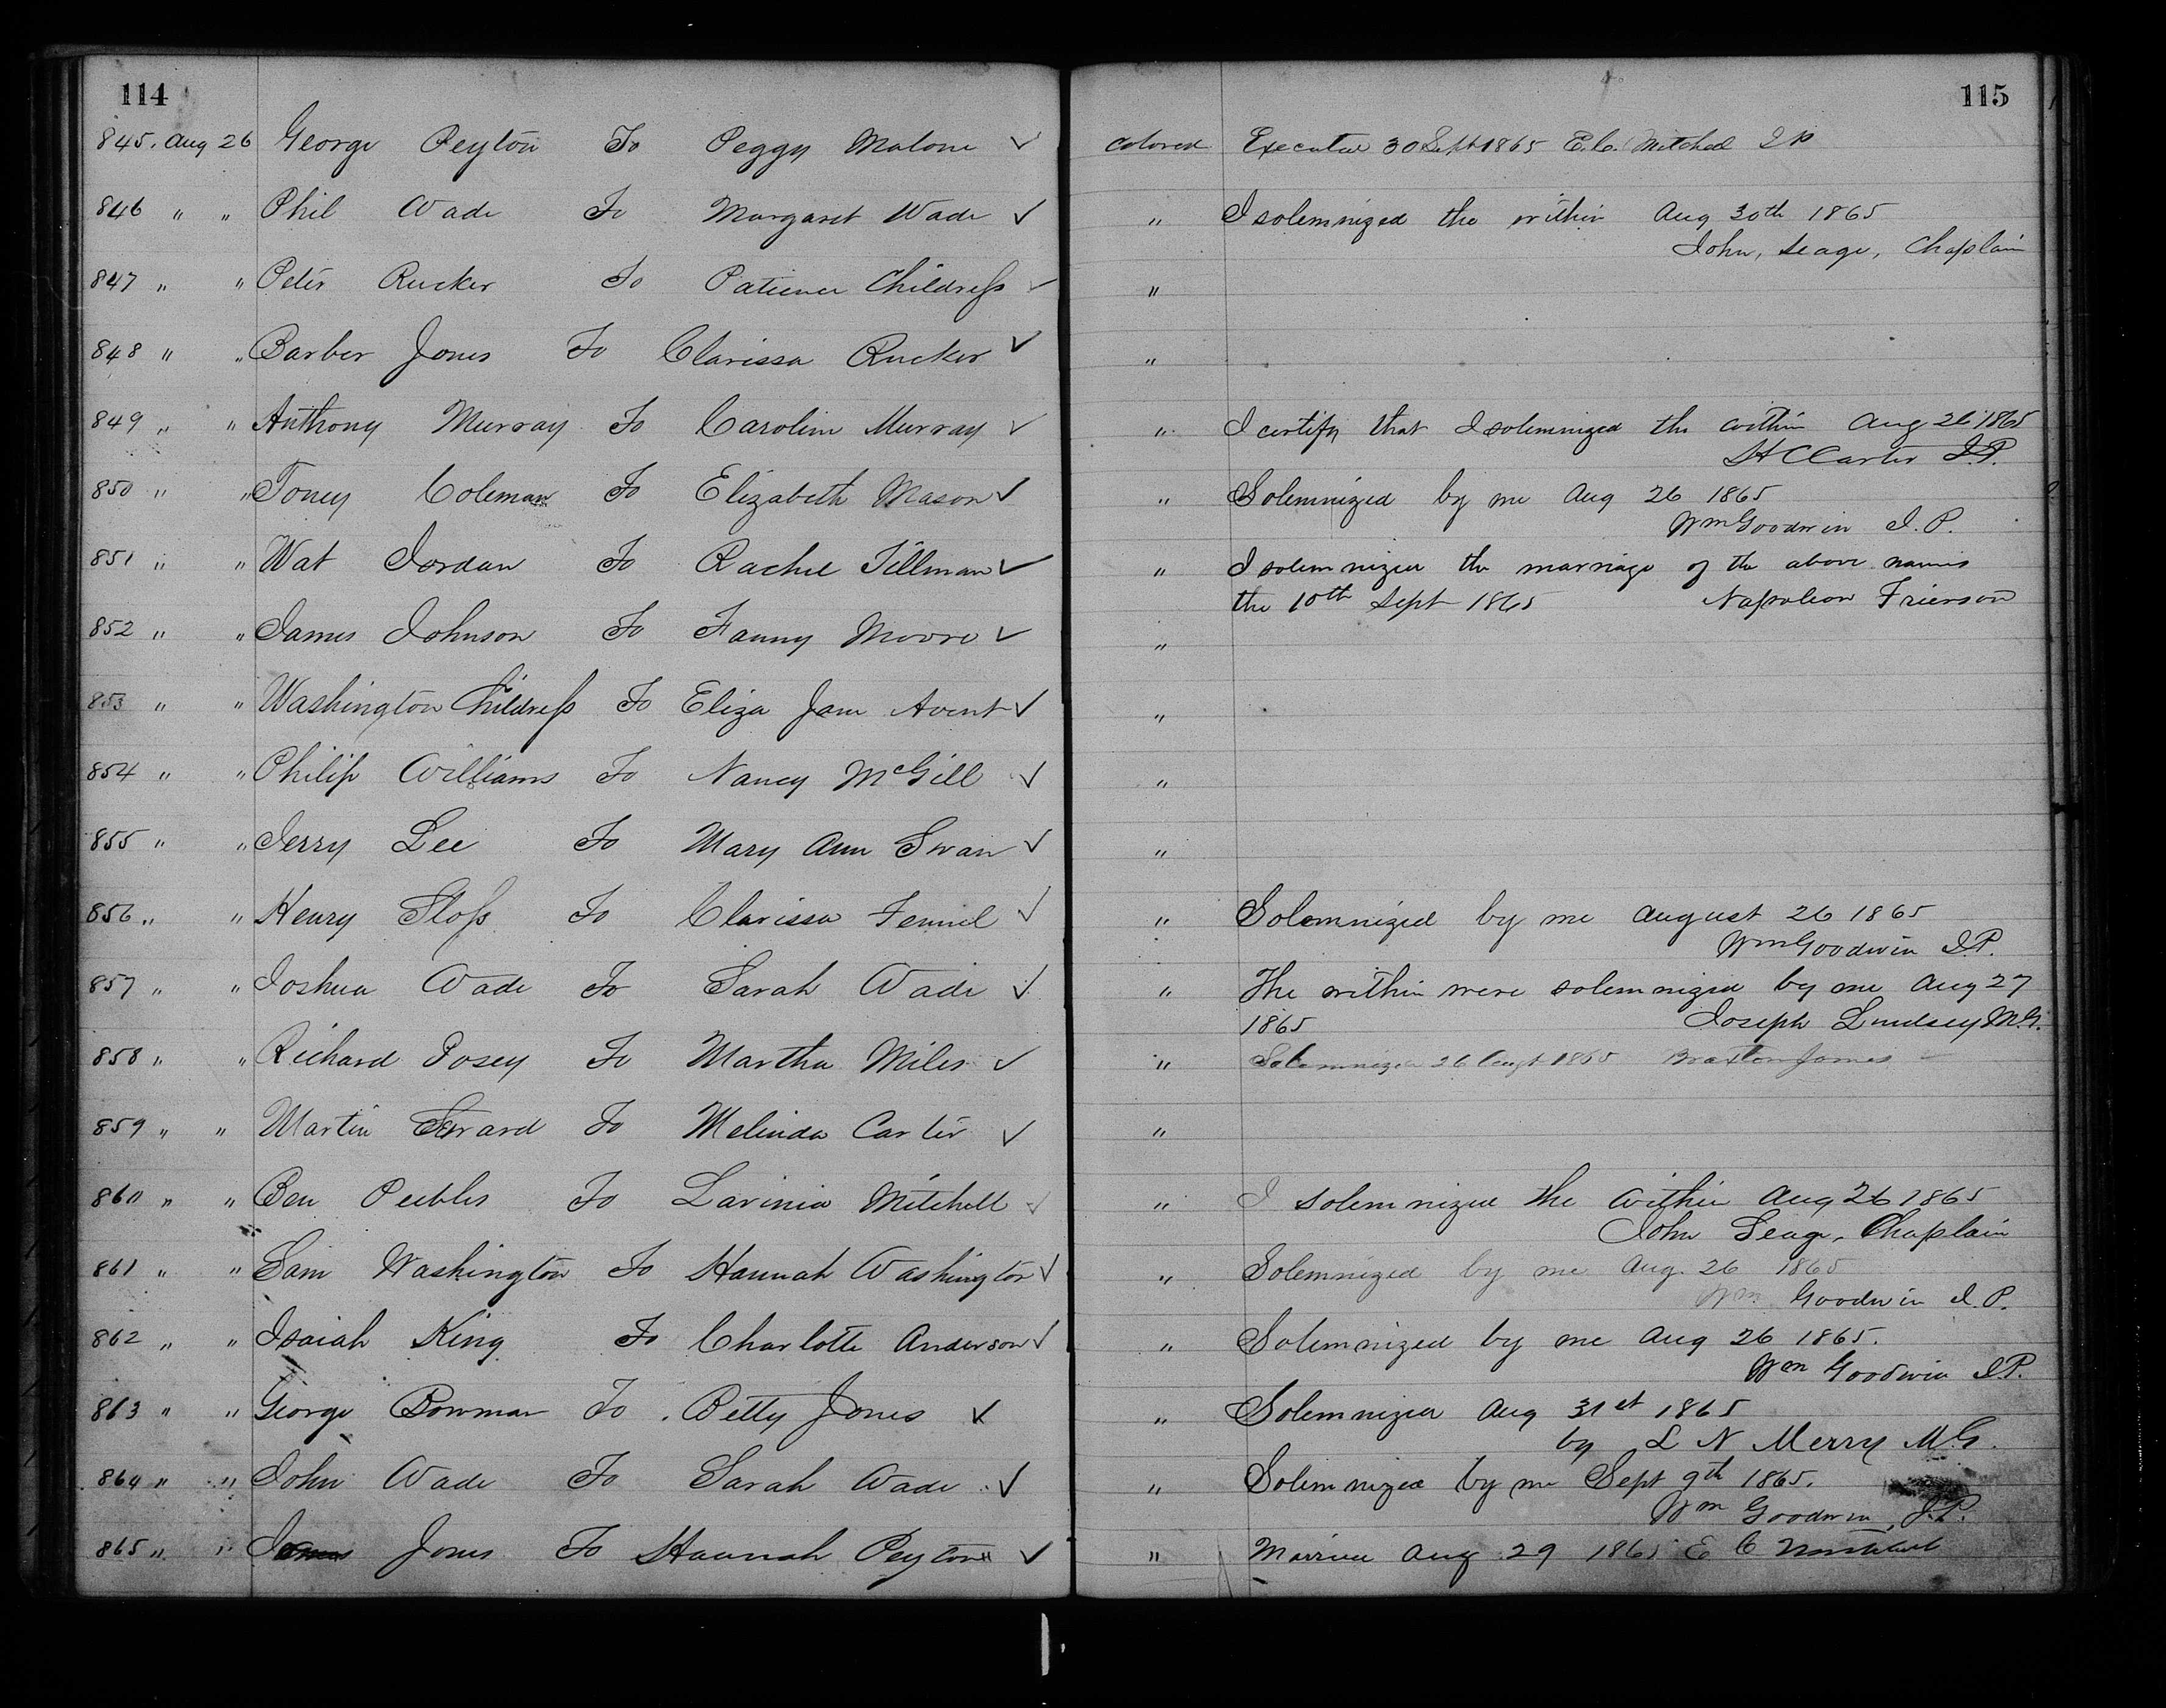 114
115
845. Aug 26 George Peyton To Peggy Malone ✓ colored Executed 30 Sept 1865 E.C. Mitchell J P
846 " " Phil Wade To Margaret Wade ✓ " I solemnized the within Aug 30th 1865
John, Seage, Chaplain
847 " " Peter Rucker To Patience Childress ✓ "
848 " " Barber Jones To Clarissa Rucker ✓ "
849 " " Anthony Murray To Caroline Murray ✓ " I certify that I solemnized the within Aug 26 1865
H C Carter J.P.
850 " " Toney Coleman To Elizabeth Mason ✓ " Solemnized by me Aug 26 1865
Wm Goodwin J.P.
851 " " Wat Jordan To Rachel Tillman ✓ " I solemnized the marriage of the above names
the 10th Sept 1865 Napoleon Frierson
852 " " James Johnson To Fanny Moore ✓ "
853 " " Washington Childress To Eliza Jane Avent ✓ "
854 " " Philip Williams To Nancy McGill ✓ "
855 " " Jerry Lee To Mary Ann Swan ✓ "
856 " " Henry Sloss To Clarissa Fennel ✓ " Solemnized by me August 26 1865
Wm Goodwin J.P.
857 " " Joshua Wade To Sarah Wade ✓ " The within were solemnized by me Aug 27
1865 Joseph Lindsey M.G.
858 " " Richard Posey To Martha Miles ✓ " Solemnized 26 Augt 1865 Braxton James
859 " " Martin To Melinda Carter ✓ "
860 " " Ben Peebles To Lavinia Mitchell ✓ " I solemnized the within Aug 26 1865
John Seage, Chaplain
861 " " Sam Washington To Hannah Washington ✓ " Solemnized by me Aug. 26 1865
Wm Goodwin J.P.
862 " " Isaiah King To Charlotte Anderson ✓ " Solemnized by me Aug 26 1865.
Wm Goodwin J.P.
863 " " George Bowman To Betty Jones ✓ " Solemnized Aug 31st 1865
by L N Merry M.G.
864 " " John Wade To Sarah Wade ✓ " Solemnized by me Sept 9th 1865.
Wm Goodwin, J.P.
865 " " Jones To Hannah Peyton ✓ " Married Aug 29 1865 E C Mitchell